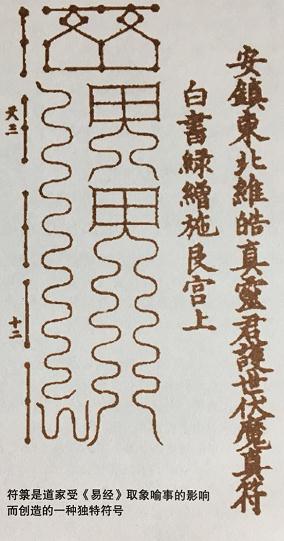 安鎮東北維皓真靈君護世伏魔真符
白書緑繒施艮宮上
天三
十二
符箓是道家受《易经》取象喻事的影响
而创造的一种独特符号